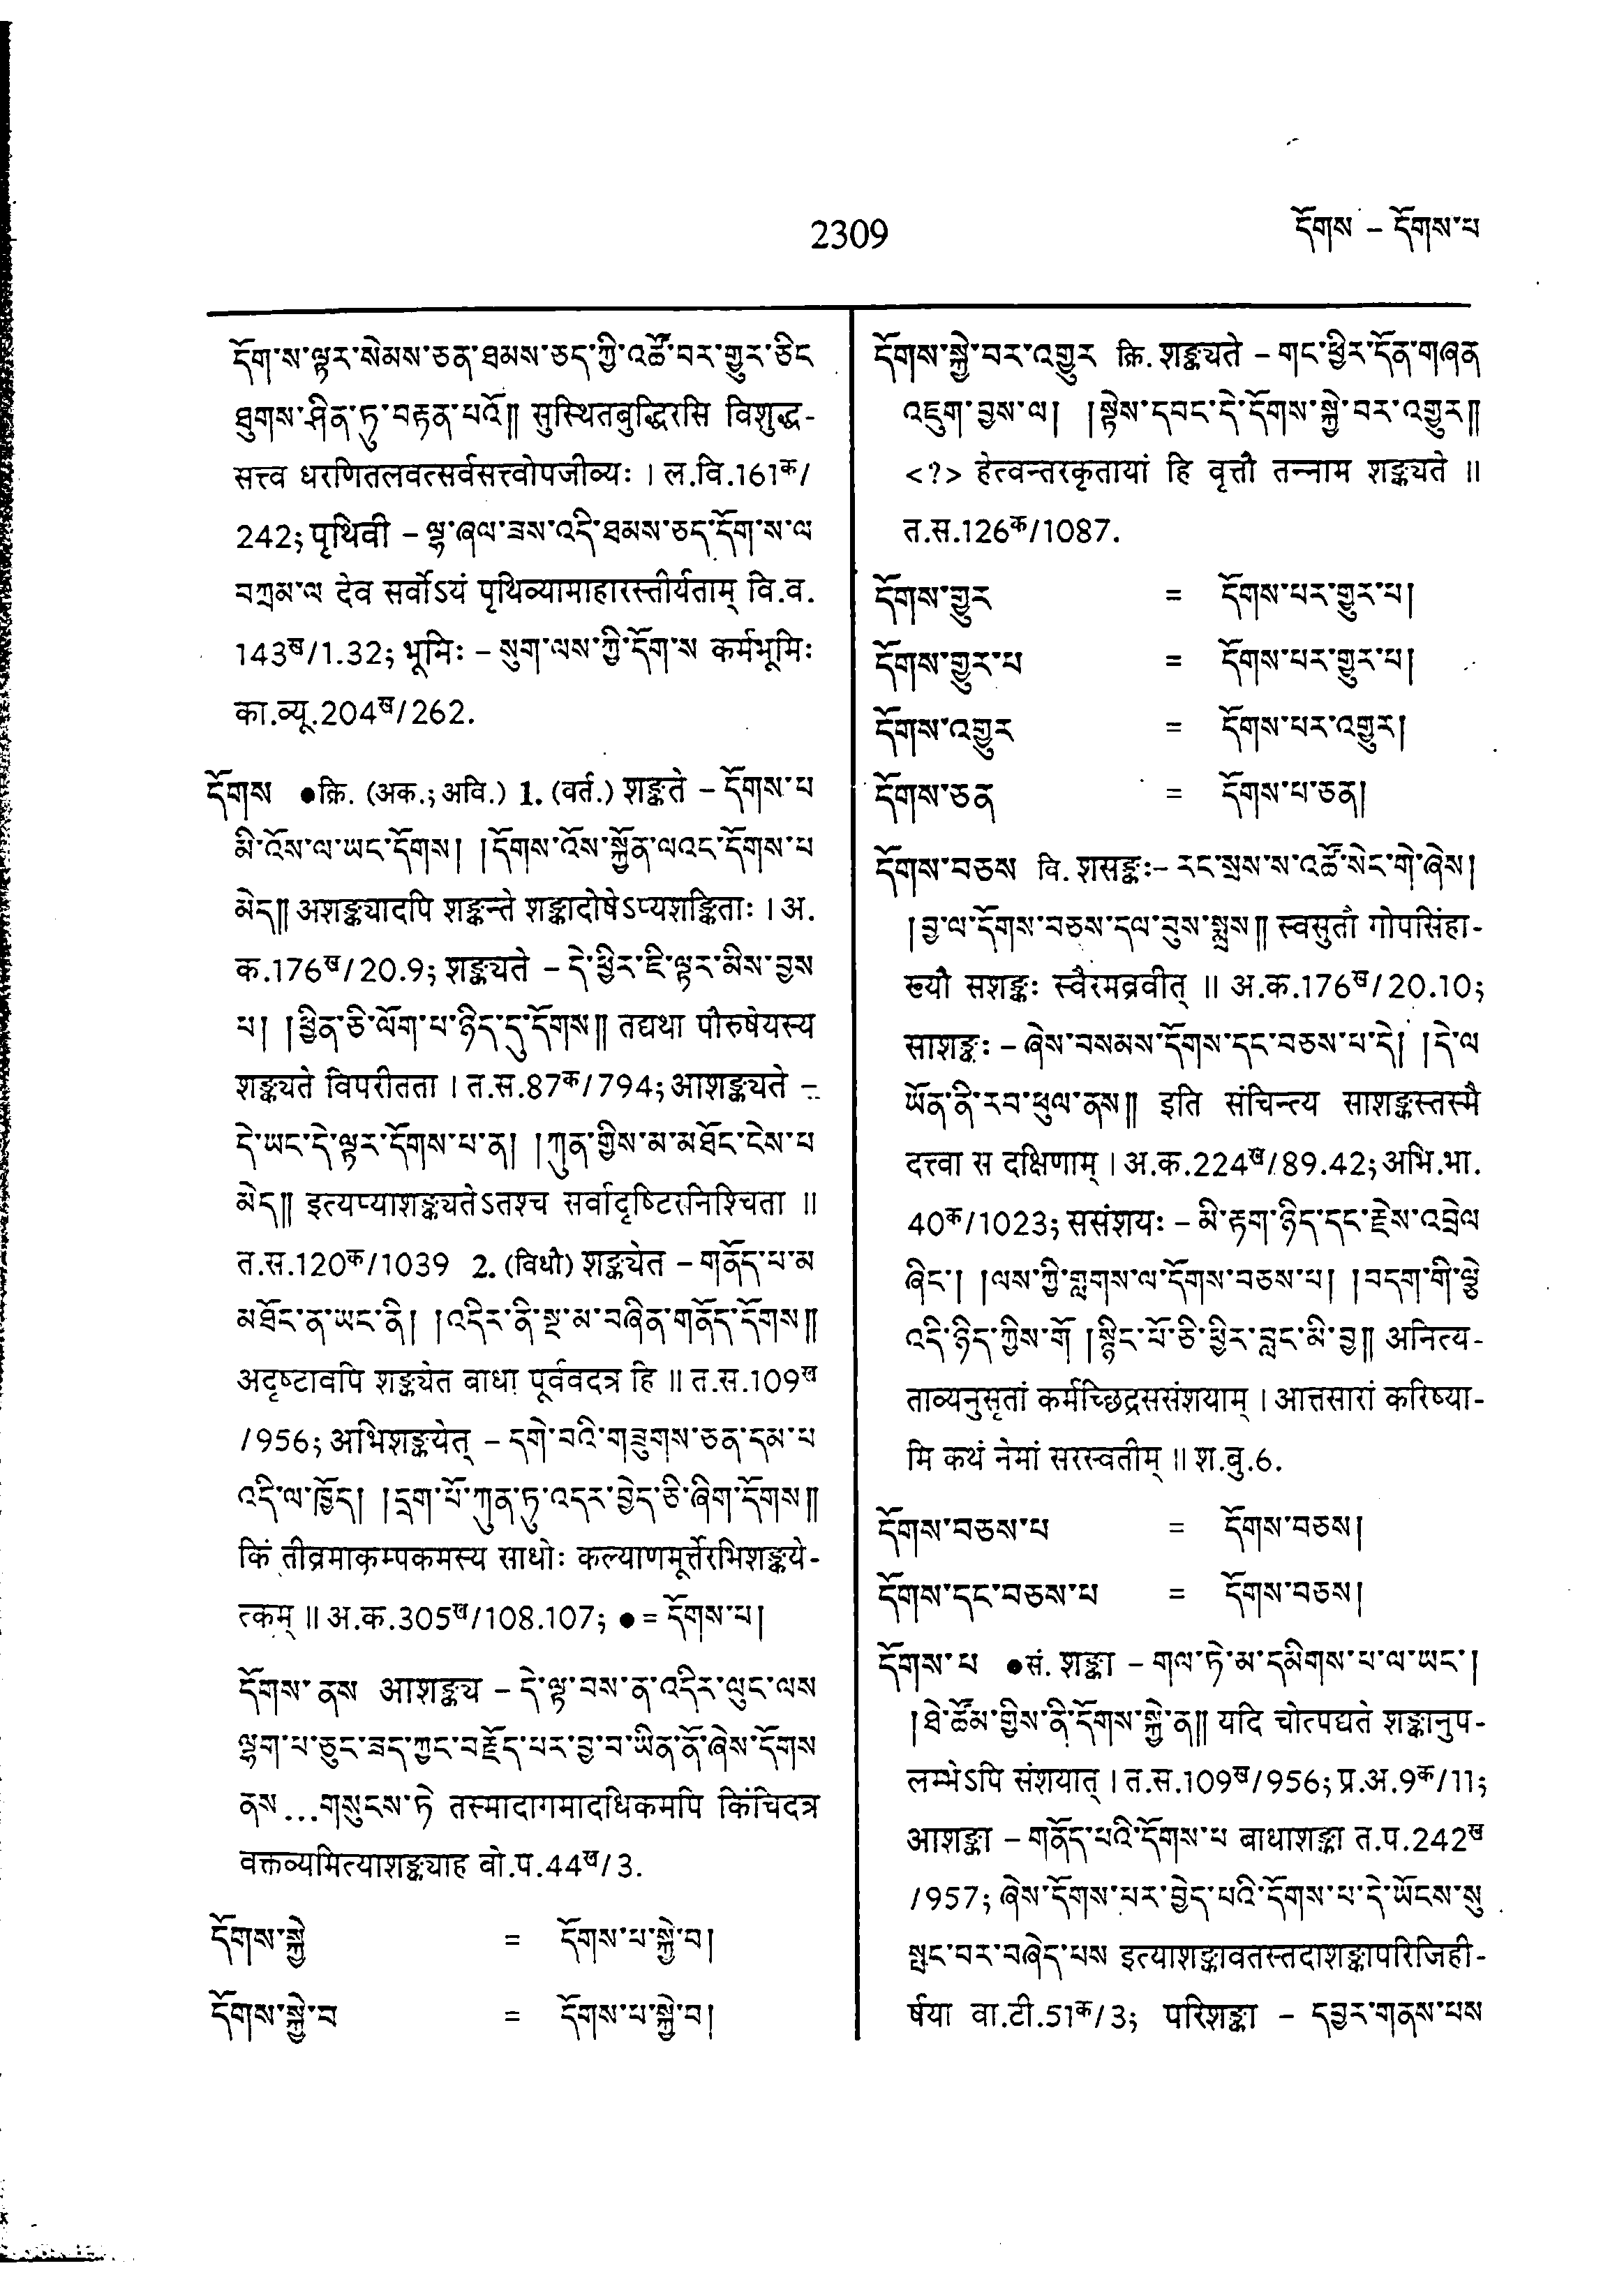 2309
དོགས – དོགས་པ
དོག་ས་ལྟར་སེམས་ཅན་ཐམས་ཅད་ཀྱི་འཚོ་བར་གྱུར་ཅིང
ཐུགས་ཤིན་ཏུ་བརྟན་པའོ༎ सुस्थितबुद्धिरसि विशुद्ध-
सत्त्व धरणितलवत्सर्वसत्त्वोपजीव्यः । ल.वि.161क/
242; पृथिवी – ལྷ་ཞལ་ཟས་འདི་ཐམས་ཅད་དོག་ས་ལ
བཀྲམ་ལ देव सर्वोऽयं पृथिव्यामाहारस्तीर्यताम् वि.व.
143ख/1.32; भूमिः – སུག་ལས་ཀྱི་དོག་ས कर्मभूमिः
का.व्यू.204ख/262.
དོགས ●क्रि. (अक.; अवि.) 1. (वर्त.) शङ्कते – དོགས་པ
མི་འོས་ལ་ཡང་དོགས། །དོགས་འོས་སྐྱོན་ལའང་དོགས་པ
མེད༎ अशङ्क्यादपि शङ्कन्ते शङ्कादोषेऽप्यशङ्किताः । अ.
क.176ख/20.9; शङ्क्यते – དེ་ཕྱིར་ཇི་ལྟར་མིས་བྱས
པ། །ཕྱིན་ཅི་ལོག་པ་ཉིད་དུ་དོགས༎ तद्यथा पौरुषेयस्य
शङ्क्यते विपरीतता । त.स.87क/794; आशङ्क्यते –
དེ་ཡང་དེ་ལྟར་དོགས་པ་ན། །ཀུན་གྱིས་མ་མཐོང་ངེས་པ
མེད༎ इत्यप्याशङ्क्यतेऽतश्च सर्वादृष्टिरनिश्चिता ॥
त.स.120क/1039 2. (विधौ) शङ्क्येत – གནོད་པ་མ
མཐོང་ན་ཡང་ནི། །འདིར་ནི་སྔ་མ་བཞིན་གནོད་དོགས༎
अदृष्टावपि शङ्क्येत बाधा पूर्ववदत्र हि ॥ त.स.109ख
/956; अभिशङ्कयेत् – དགེ་བའི་གཟུགས་ཅན་དམ་པ
འདི་ལ་ཁྱོད། །དྲག་པོ་ཀུན་ཏུ་འདར་བྱེད་ཅི་ཞིག་དོགས༎
किं तीव्रमाकम्पकमस्य साधोः कल्याणमूर्त्तेरभिशङ्कये-
त्कम् ॥ अ.क.305ख/108.107; ● = དོགས་པ།
དོགས་ནས आशङ्क्य – དེ་ལྟ་བས་ན་འདིར་ལུང་ལས
ལྷག་པ་ཅུང་ཟད་ཀྱང་བརྗོད་པར་བྱ་བ་ཡིན་ནོ་ཞེས་དོགས
ནས...གསུངས་ཏེ तस्मादागमादधिकमपि किंचिदत्र
वक्तव्यमित्याशङ्क्याह बो.प.44ख/3.
དོགས་སྐྱེ = དོགས་པ་སྐྱེ་བ།
དོགས་སྐྱེ་བ = དོགས་པ་སྐྱེ་བ།
དོགས་སྐྱེ་བར་འགྱུར क्रि. शङ्क्यते – གང་ཕྱིར་དོན་གཞན
འཇུག་བྱས་ལ། །སྟེས་དབང་དེ་དོགས་སྐྱེ་བར་འགྱུར༎
<?> हेत्वन्तरकृतायां हि वृत्तौ तन्नाम शङ्क्यते ॥
त.स.126क/1087.
དོགས་གྱུར = དོགས་པར་གྱུར་པ།
དོགས་གྱུར་པ = དོགས་པར་གྱུར་པ།
དོགས་འགྱུར = དོགས་པར་འགྱུར།
དོགས་ཅན = དོགས་པ་ཅན།
དོགས་བཅས वि. शसङ्कः– རང་སྲས་ས་འཚོ་སེང་གེ་ཞེས།
།བྱ་ལ་དོགས་བཅས་དལ་བུས་སྨྲས༎ स्वसुतौ गोपसिंहा-
ख्यौ सशङ्कः स्वैरमब्रवीत् ॥ अ.क.176ख/20.10;
साशङ्कः – ཞེས་བསམས་དོགས་དང་བཅས་པ་དེ། །དེ་ལ
ཡོན་ནི་རབ་ཕུལ་ནས༎ इति संचिन्त्य साशङ्कस्तस्मै
दत्त्वा स दक्षिणाम् । अ.क.224ख/89.42; अभि.भा.
40क/1023; ससंशयः – མི་རྟག་ཉིད་དང་རྗེས་འབྲེལ
ཞིང་། །ལས་ཀྱི་གླགས་ལ་དོགས་བཅས་པ། །བདག་གི་ལྕེ
འདི་ཉིད་ཀྱིས་གོ །སྙིང་པོ་ཅི་ཕྱིར་བླང་མི་བྱ༎ अनित्य-
ताव्यनुसृतां कर्मच्छिद्रससंशयाम् । आत्तसारां करिष्या-
मि कथं नेमां सरस्वतीम् ॥ श.बु.6.
དོགས་བཅས་པ = དོགས་བཅས།
དོགས་དང་བཅས་པ = དོགས་བཅས།
དོགས་པ ●सं. शङ्का – གལ་ཏེ་མ་དམིགས་པ་ལ་ཡང་།
།ཐེ་ཚོམ་གྱིས་ནི་དོགས་སྐྱེ་ན༎ यदि चोत्पद्यते शङ्कानुप-
लम्भेऽपि संशयात् । त.स.109ख/956; प्र.अ.9क/11;
आशङ्का – གནོད་པའི་དོགས་པ बाधाशङ्का त.प.242ख
/957; ཞེས་དོགས་པར་བྱེད་པའི་དོགས་པ་དེ་ཡོངས་སུ
སྤང་བར་བཞེད་པས इत्याशङ्कावतस्तदाशङ्कापरिजिही-
र्षया वा.टी.51क/3; परिशङ्का – དབྱར་གནས་པས